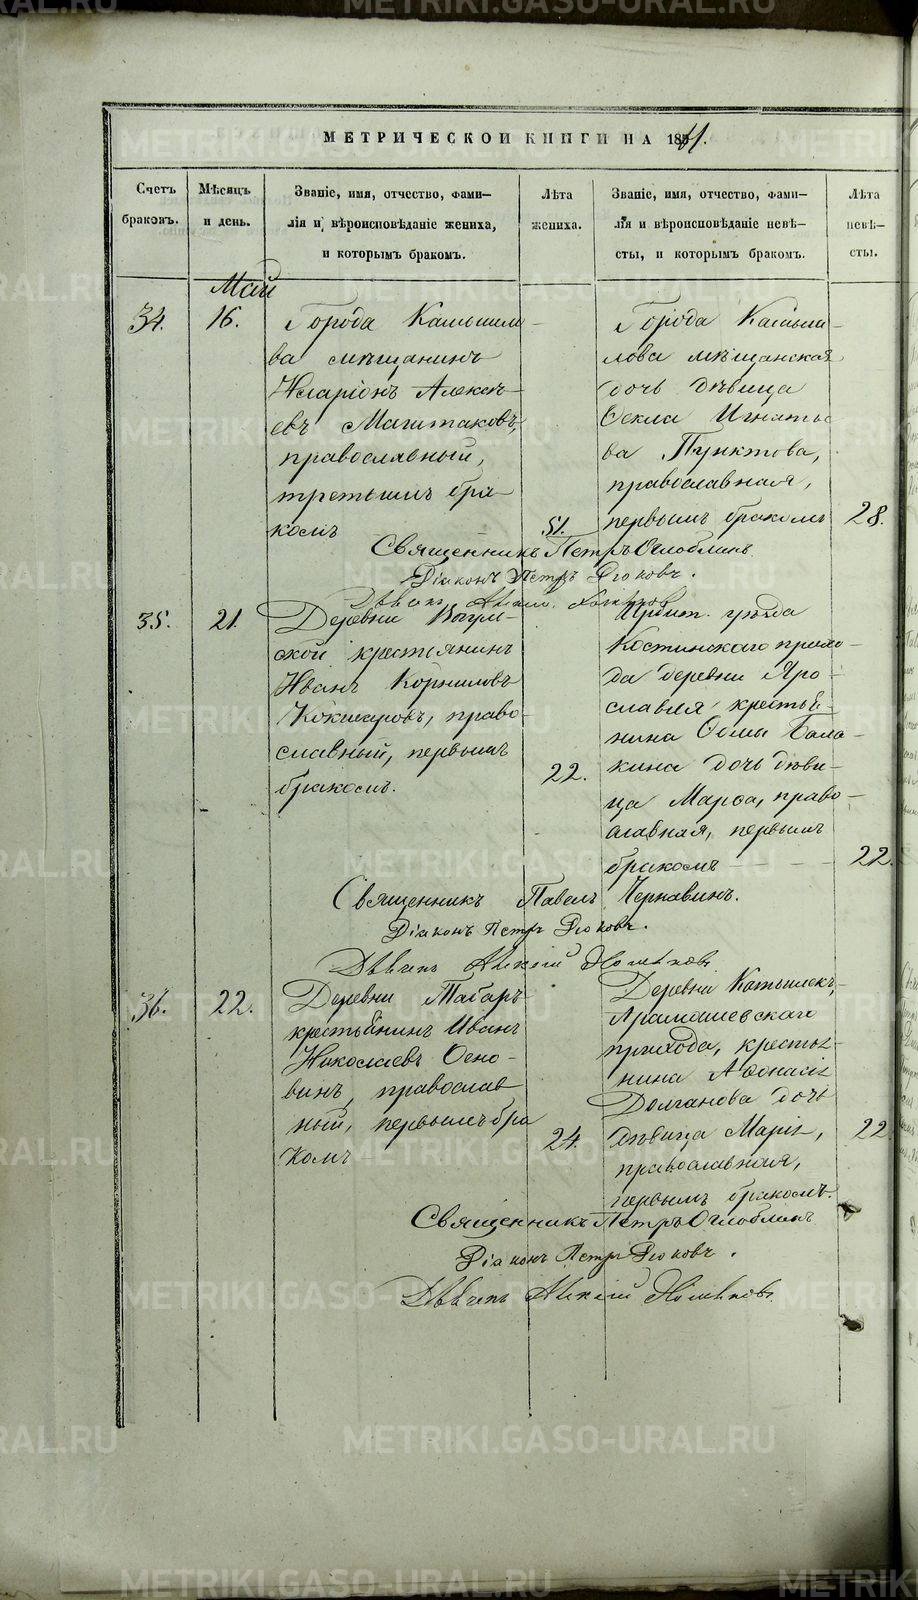 МЕТРИЧЕСКОЙ КНИГИ НА 1861.
Счетъ
браковъ.
Мѣсяцъ
и день.
Званіе, имя, отчество, фами-
лія и вѣроисповѣданіе жениха,
и которымъ бракомъ.
Лѣта
жениха.
Званіе, имя, отчество, фами-
лія и вѣроисповѣданіе невѣ-
сты, и которымъ бракомъ.
Лѣта
невѣ-
сты.
Май
34.
16.
Города Камышло-
ва мѣщанинъ
Иларіонъ Алексѣ-
евъ Магитаковъ,
православный,
третьимъ бра-
комъ
51.
Города Камыш-
лова мѣщанская
дочь дѣвица
Ѳекла Игнатье
ва Пунктова,
православная,
первымъ бракомъ
28.
Священникъ Петръ Оглоблинъ.
Діаконъ Петръ
35.
21.
Деревни
ской крестьянинъ
Иванъ Корниловъ
Кокшаровъ, право-
славный, первымъ
бракомъ.
22.
Ирбит. уѣзда
Костинскаго прихо-
да деревни Яро-
славля крестья-
нина Ѳомы Бала-
кина дочь дѣви-
ца Марѳа, право-
славная, первымъ
бракомъ
22.
Священникъ Павелъ Чернавинъ.
Діаконъ Петръ
36.
22.
Деревни Табаръ
крестьянинъ Иванъ
Николаевъ Осно-
винъ, православ
ный, первымъ бра
комъ
24.
Деревни
Арамашевскаго
прихода, крестья-
нина Аѳонасія
Долганова дочь
дѣвица Марія,
православная,
первымъ бракомъ.
22
Священникъ Петръ Оглоблинъ
Діаконъ Петръ
METRIKI.GASO-URAL.RU